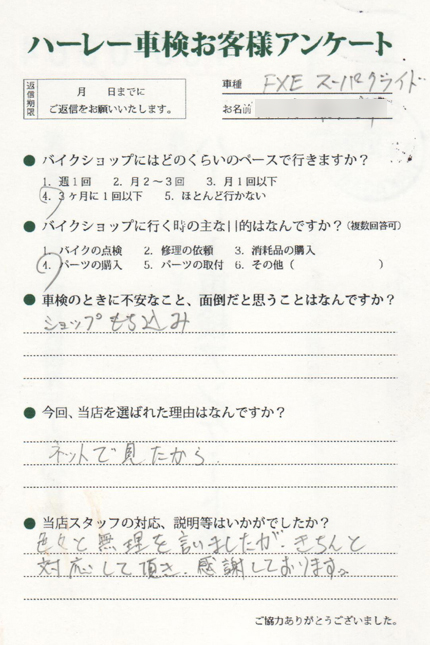 ハーレー車検お客様アンケート
返信期限
月　日までに
ご返信をお願いいたします。
車種 FXE スーパーグライド
お名前
● バイクショップにはどのくらいのペースで行きますか？
1. 週1回　2. 月2～3回　3. 月1回以下
4. 3ヶ月に1回以下　5. ほとんど行かない
● バイクショップに行く時の主な目的はなんですか？（複数回答可）
1. バイクの点検　2. 修理の依頼　3. 消耗品の購入
4. パーツの購入　5. パーツの取付　6. その他（　　　　）
● 車検のときに不安なこと、面倒だと思うことはなんですか？
ショップもち込み
● 今回、当店を選ばれた理由はなんですか？
ネットで見たから
● 当店スタッフの対応、説明等はいかがでしたか？
色々と無理を言いましたが、きちんと
対応して頂き、感謝しております。
ご協力ありがとうございました。